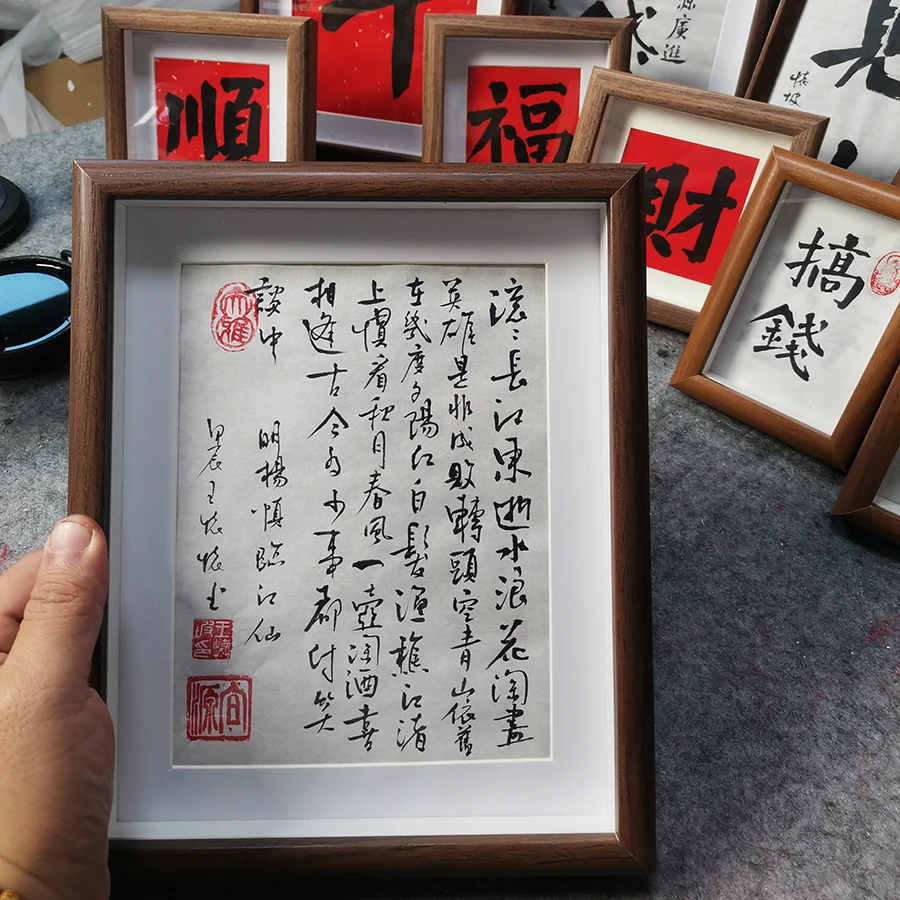 滾〻長江東逝水浪花淘盡
英雄是非成敗轉頭空青山依舊
在幾度夕陽紅白髮漁樵江渚
上慣看秋月春風一壺濁酒喜
相逢古今多少事都付笑
談中
明楊慎臨江仙
甲辰王
順
福
財
搞
錢
源廣進